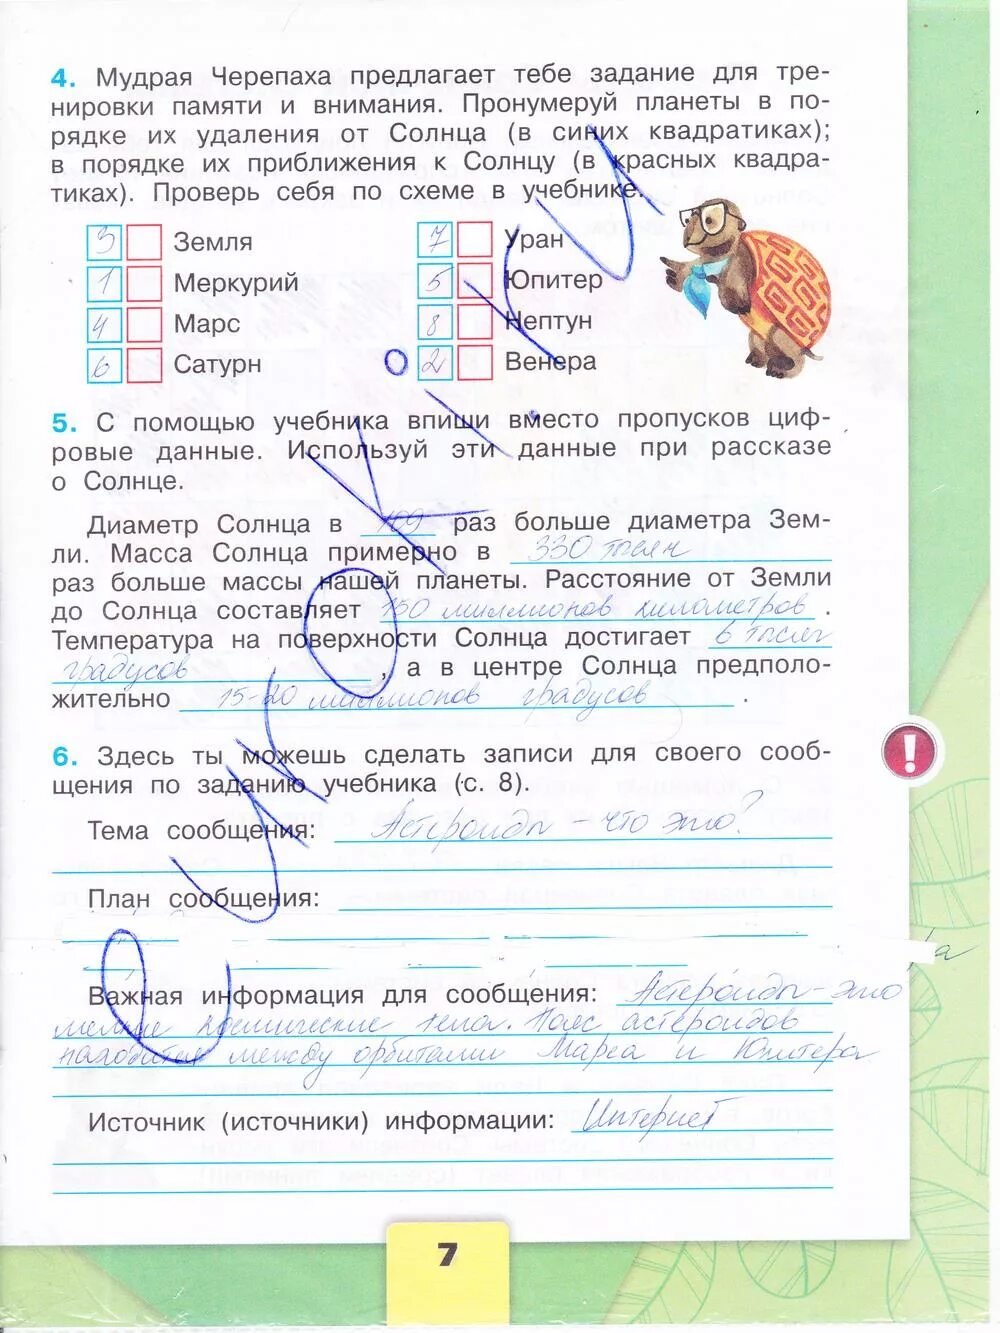 4. Мудрая Черепаха предлагает тебе задание для тре-
нировки памяти и внимания. Пронумеруй планеты в по-
рядке их удаления от Солнца (в синих квадратиках);
в порядке их приближения к Солнцу (в красных квадра-
тиках). Проверь себя по схеме в учебнике.
3 Земля
1 Меркурий
4 Марс
6 Сатурн
7 Уран
5 Юпитер
8 Нептун
2 Венера
5. С помощью учебника впиши вместо пропусков циф-
ровые данные. Используй эти данные при рассказе
о Солнце.
Диаметр Солнца в 109 раз больше диаметра Зем-
ли. Масса Солнца примерно в 330 тысяч
раз больше массы нашей планеты. Расстояние от Земли
до Солнца составляет 150 миллионов километров .
Температура на поверхности Солнца достигает 6 тысяч
градусов , а в центре Солнца предполо-
жительно 15-20 миллионов градусов .
6. Здесь ты можешь сделать записи для своего сооб-
щения по заданию учебника (с. 8).
Тема сообщения: Астероиды - что это?
План сообщения:
Важная информация для сообщения: Астероиды - это
мелкие космические тела. Пояс астероидов
находится между орбитами Марса и Юпитера
Источник (источники) информации: Интернет
!
7